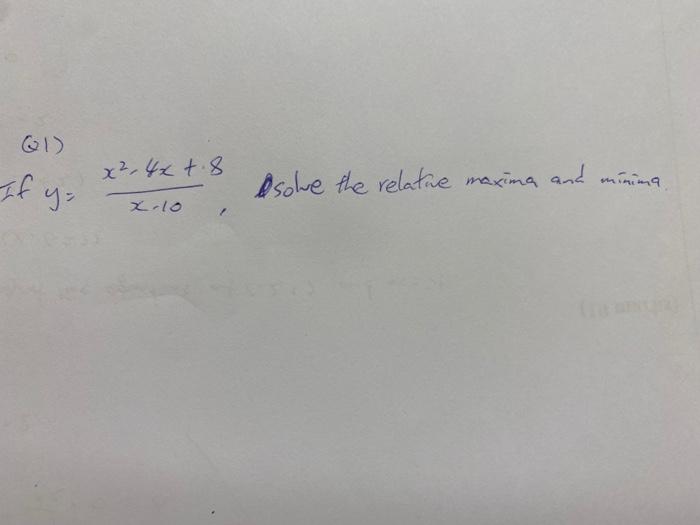 Q1)
If y = x² - 4x + 8 / x - 10 , solve the relative maxima and minima.